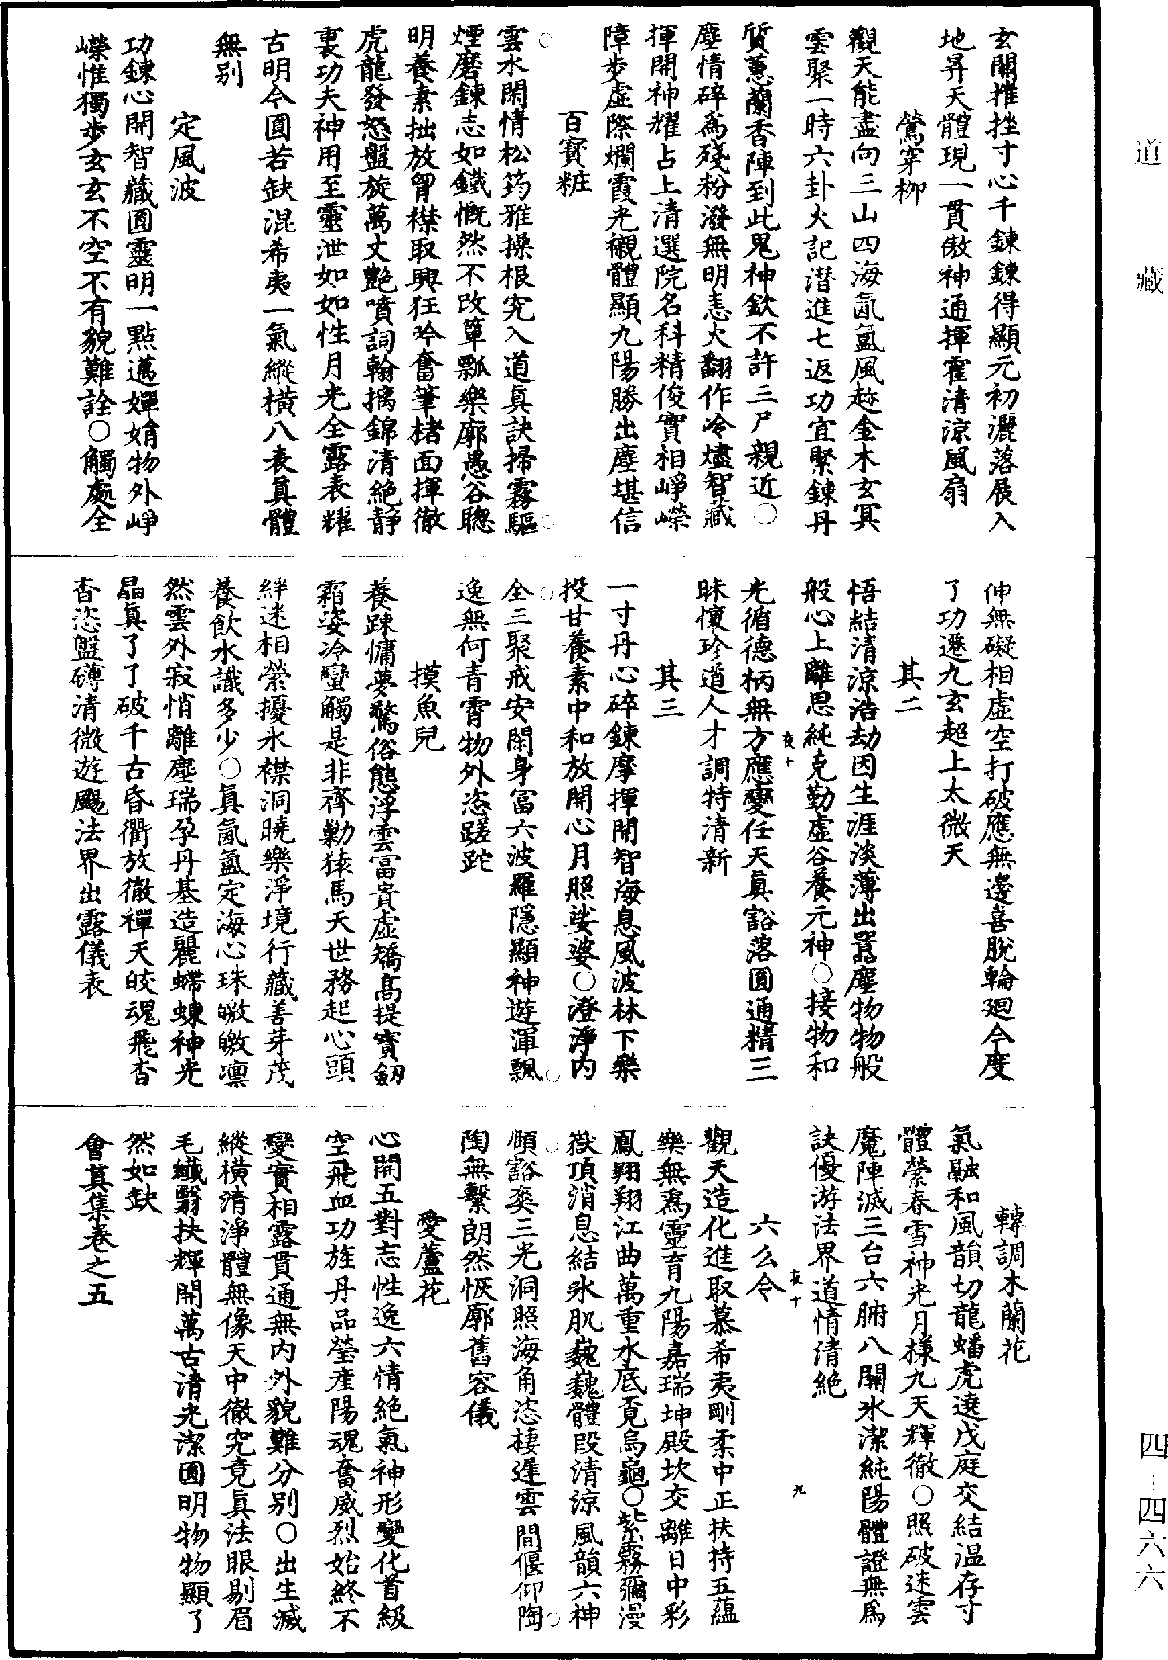 玄關推挫寸心千鍊鍊得顯元初灑落展入
地昇天體現一貫傲神通揮霍清涼風扇
鶯穿柳
觀天能盡向三山四海氤氳風趂金木玄冥
雲聚一時六卦火記潛進七返功宜緊鍊丹
質蕙蘭香陣到此鬼神欽不許三尸親近○
塵情碎為殘粉潑無明恚火翻作冷燼智藏
揮開神耀占上清選院名科精俊實相崢嶸
障步虛際爛霞光襯體顯九陽勝出塵堪信
百寶粧
雲水閑情松筠雅操根究入道真訣掃霧驅
煙磨鍊志如鐵慨然不改簞瓢樂廓愚谷聰
明養素拙放胷襟取興狂吟奮筆楮面揮徹
虎龍發怒盤旋萬丈艷噴詞翰摛錦清絕靜
裏功夫神用至靈泄如如性月光全露表耀
古明今圓若缺混希夷一氣縱橫八表真體
無別
定風波
功鍊心開智藏圓靈明一點邁嬋娟物外崢
嶸惟獨步玄玄不空不有貌難詮○觸處全
伸無礙相虛空打破應無邊喜脫輪廻今度
了功遷九玄超上太微天
其二
悟結清涼浩劫因生涯淡薄出囂塵物物般
般心上離思純克勤虛谷養元神○接物和
光循德柄無方應變任天真豁落圓通精三
昧懷珍道人才調特清新
其三
一寸丹心碎鍊摩揮開智海息風波林下樂
投甘養素中和放開心月照娑婆○澄淨內
全三聚戒安閑身富六波羅隱顯神遊渾飄
逸無何青霄物外恣蹉跎
摸魚兒
養踈慵夢驚俗態浮雲富貴虛矯高提寶劔
霜姿冷蠻觸是非齊勦猿馬夭世務起心頭
絆迷相縈擾氷襟洞曉樂淨境行藏善芽茂
養飲水識多少○真氤氳定海心珠皦皦凛
然雲外寂悄離塵瑞孕丹基造麗蠕蝀神光
晶真了了破千古昏衢放徹禪天皎魂飛杳
杳恣盤礴清微遊颺法界出露儀表
轉調木蘭花
氣融和風韻切龍蟠虎遶戊庭交結溫存寸
體縈春雪神光月樣九天輝徹○照破迷雲
魔陣滅三台六腑八關氷潔純陽體證無為
訣優游法界道情清絕
六么令
觀天造化進取慕希夷剛柔中正扶持五蘊
樂無為靈育九陽嘉瑞坤殿坎交離日中彩
鳳翔翔江曲萬重水底覓烏龜○紫霧彌漫
嶽頂消息結氷肌巍巍體段清涼風韻六神
頤豁奕三光洞照海角恣棲遲雲間偃仰陶
陶無繫朗然恢廓舊容儀
愛蘆花
心開五對志性逸六情絕氣神形變化首級
空飛血功旌丹品瑩產陽魂奮威烈始終不
變實相露貫通無內外貌難分別○出生滅
縱橫清淨體無像天中徹究竟真法眼剔眉
毛纖翳扶輝開萬古清光潔圓明物物顯了
然如缺
會真集卷之五
道藏
四‧四六六